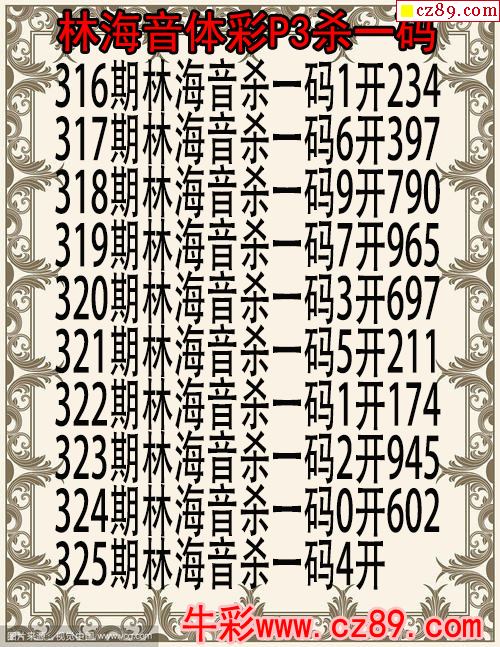 cz89.com
林海音体彩P3杀一码
316期林海音杀一码1开234
317期林海音杀一码6开397
318期林海音杀一码9开790
319期林海音杀一码7开965
320期林海音杀一码3开697
321期林海音杀一码5开211
322期林海音杀一码1开174
323期林海音杀一码2开945
324期林海音杀一码0开602
325期林海音杀一码4开
牛彩www.cz89.com
图片来源：视觉中国 www.vcg.com